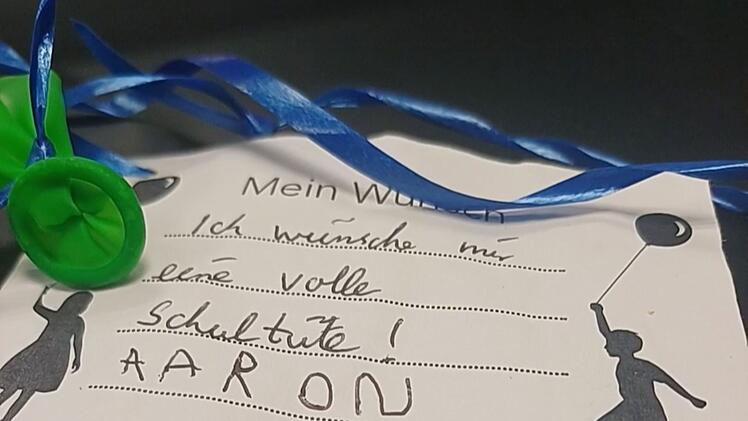 Mein Wunsch
Ich wünsche mir
eine volle
Schultüte!
AARON